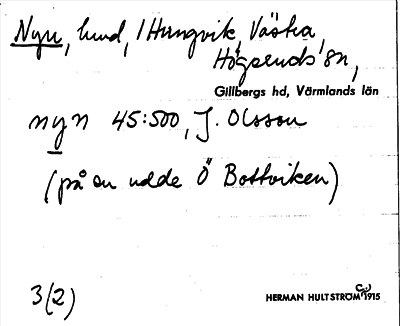 Nyn, hund, i Hungvik, Västra,
Högsrudsån,
Gillbergs hd, Värmlands län
nyn 45:500, J. Olsson
(på en udde Ö Bottviken)
3(2)
HERMAN HULTSTRÖM 1915